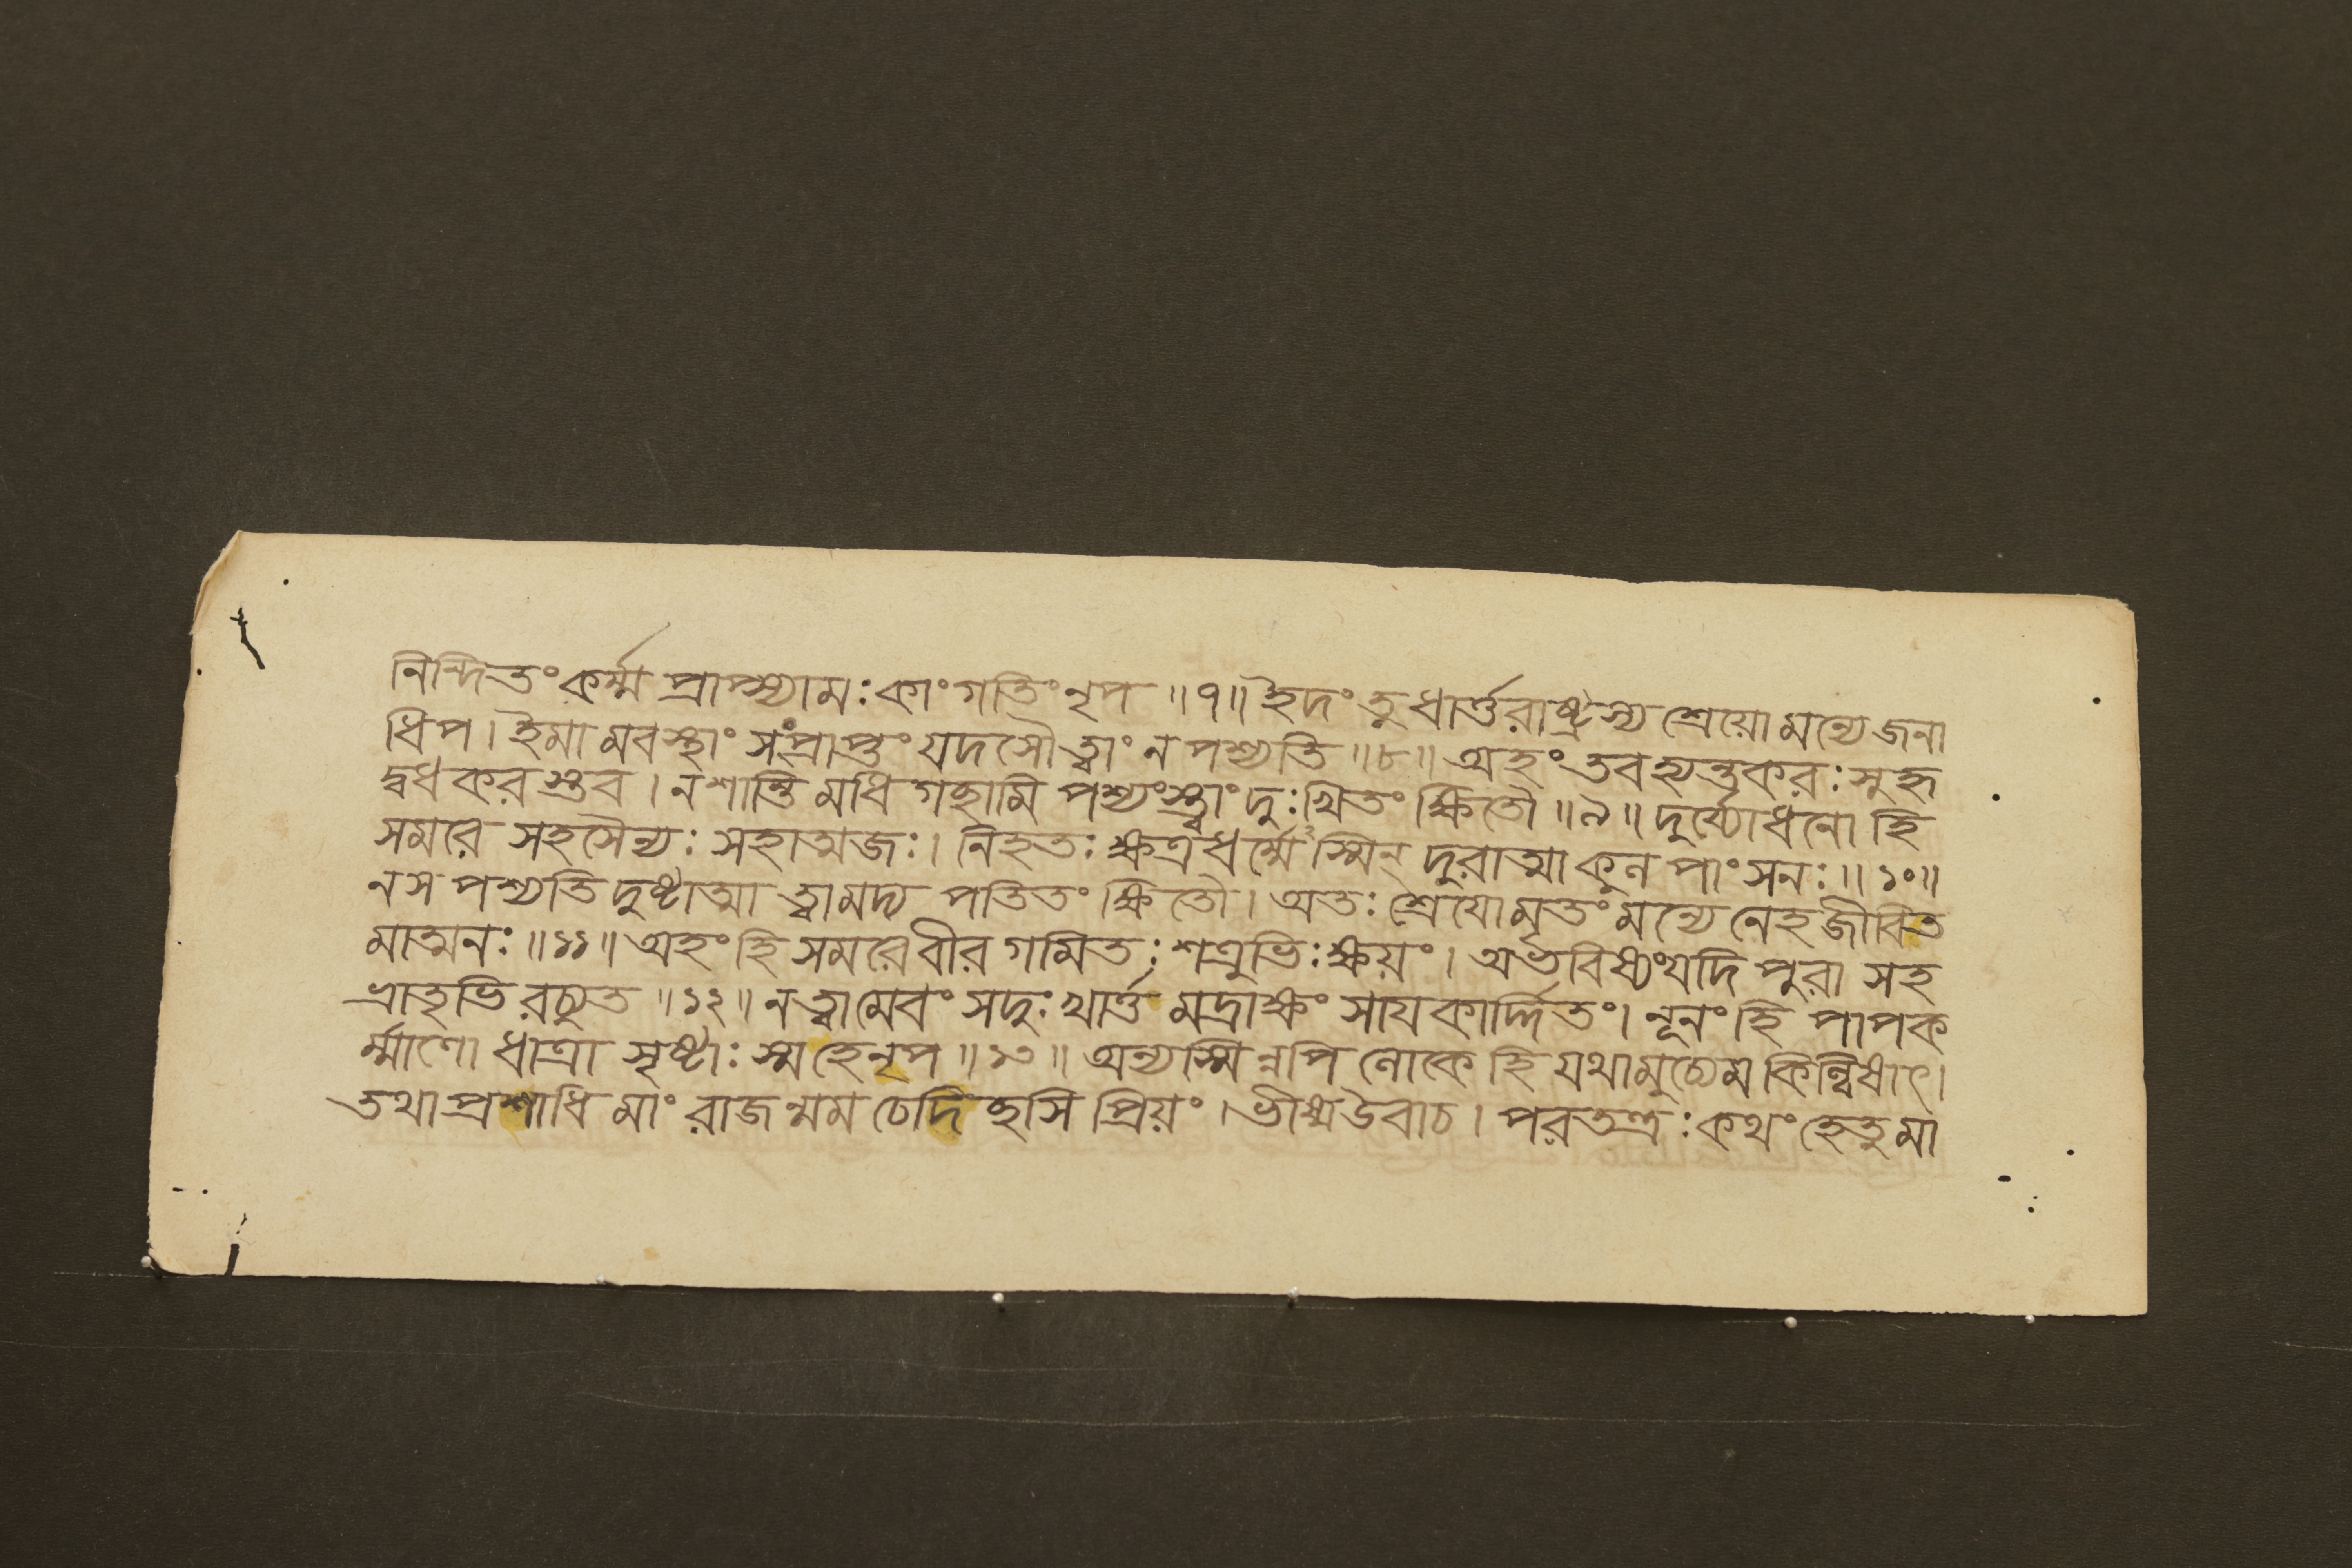 নিন্দিতং কর্ম্ম প্রাপ্স্যামঃ কাং গতিং নৃপ ॥৭॥ ইদং তু ধার্ত্তরাষ্ট্রস্য শ্রেয়ো মন্যে জনা
ধিপ। ইমামবস্থাং সংপ্রাপ্তং যদসৌ ত্বাং ন পশ্যতি ॥৮॥ অহং তবহ্যন্তকরঃ সুহৃ
দ্বধকরস্তব। ন শান্তিমধিগচ্ছামি পশ্যংস্ত্বাং দুঃখিতং ক্ষিতৌ ॥৯॥ দুর্য্যোধনো হি
সমরে সহসৈন্যঃ সহাত্মজঃ। নিহতঃ ক্ষত্রধর্ম্মেঽস্মিন্ দুরাত্মা কুল পাংসনঃ ॥১০॥
ন স পশ্যতি দুষ্টাত্মা ত্বামদ্য পতিতং ক্ষিতৌ। অতঃ শ্রেয়ো মৃতং মন্যে নেহ জীবিত
মাত্মনঃ ॥১১॥ অহং হি সমরে বীর গমিতঃ শত্রুভিঃ ক্ষয়ং। অভবিষ্যং যদি পুরা সহ
ভ্রাতৃভিরচ্যুত ॥১২॥ ন ত্বামেবং সদুঃখার্ত্তমদ্রাক্ষং সায়কার্দ্দিতং। নূনং হি পাপক
র্ম্মাণো ধাত্রা সৃষ্টাঃ স্ম হে নৃপ ॥১৩॥ অন্যস্মিন্নপি লোকে হি যথা মুচ্যেম কিল্বিষাৎ।
তথা প্রশাধি মাং রাজন্মম চেদিচ্ছসি প্রিয়ং। ভীষ্ম উবাচ। পরতন্ত্রঃ কথং হেতুমা